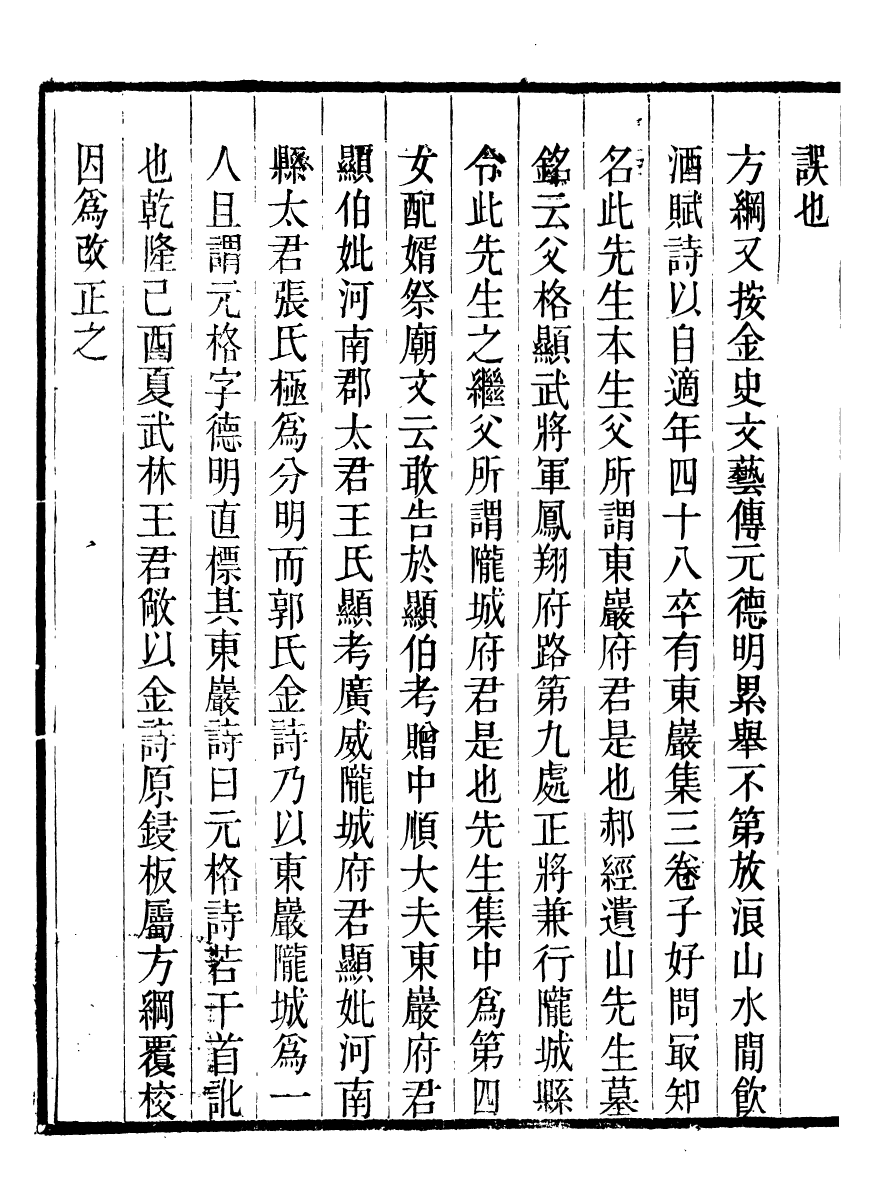 誤也
方綱又按金史文藝傳元德明累舉不第放浪山水閒飮
酒賦詩以自適年四十八卒有東巖集三卷子好問冣知
名此先生本生父所謂東巖府君是也郝經遺山先生墓
銘云父格顯武將軍鳳翔府路第九處正將兼行隴城縣
令此先生之繼父所謂隴城府君是也先生集中爲第四
女配婿祭廟文云敢告於顯伯考贈中順大夫東巖府君
顯伯妣河南郡太君王氏顯考廣威隴城府君顯妣河南
縣太君張氏極爲分明而郭氏金詩乃以東巖隴城爲一
人且謂元格字德明直標其東巖詩曰元格詩若干首訛
也乾隆己酉夏武林王君敞以金詩原鋟板屬方綱覆校
因爲改正之